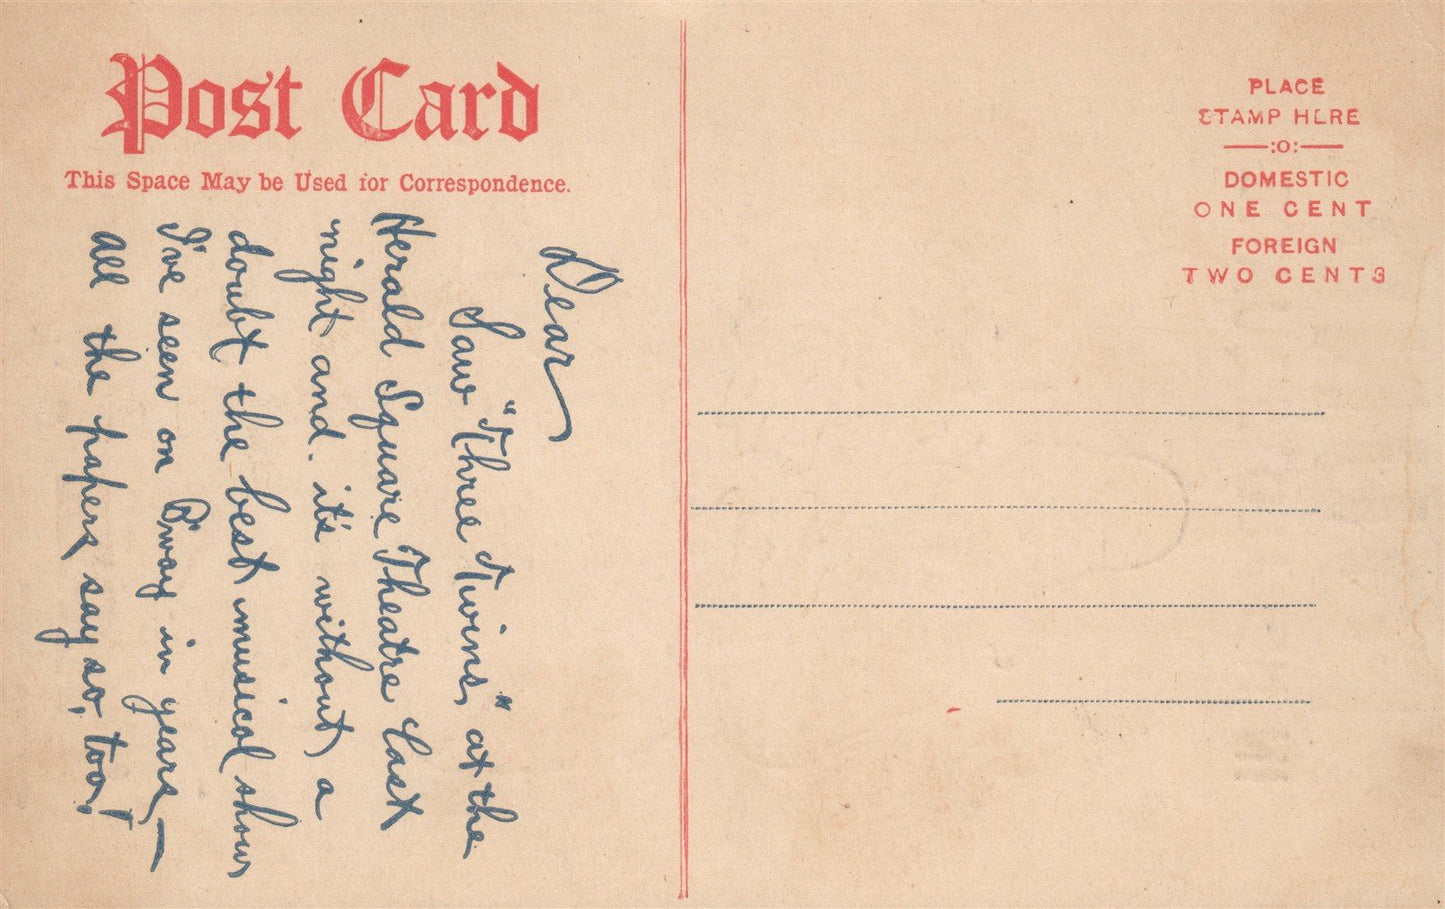 Post Card
This Space May be Used for Correspondence.
Dear
Saw "Three Twins" at the
Herald Square Theatre last
night and it's without a
doubt the best musical show
I've seen on B'way in years, —
all the papers say so, too,!
PLACE
STAMP HERE
—:o:—
DOMESTIC
ONE CENT
FOREIGN
TWO CENTS